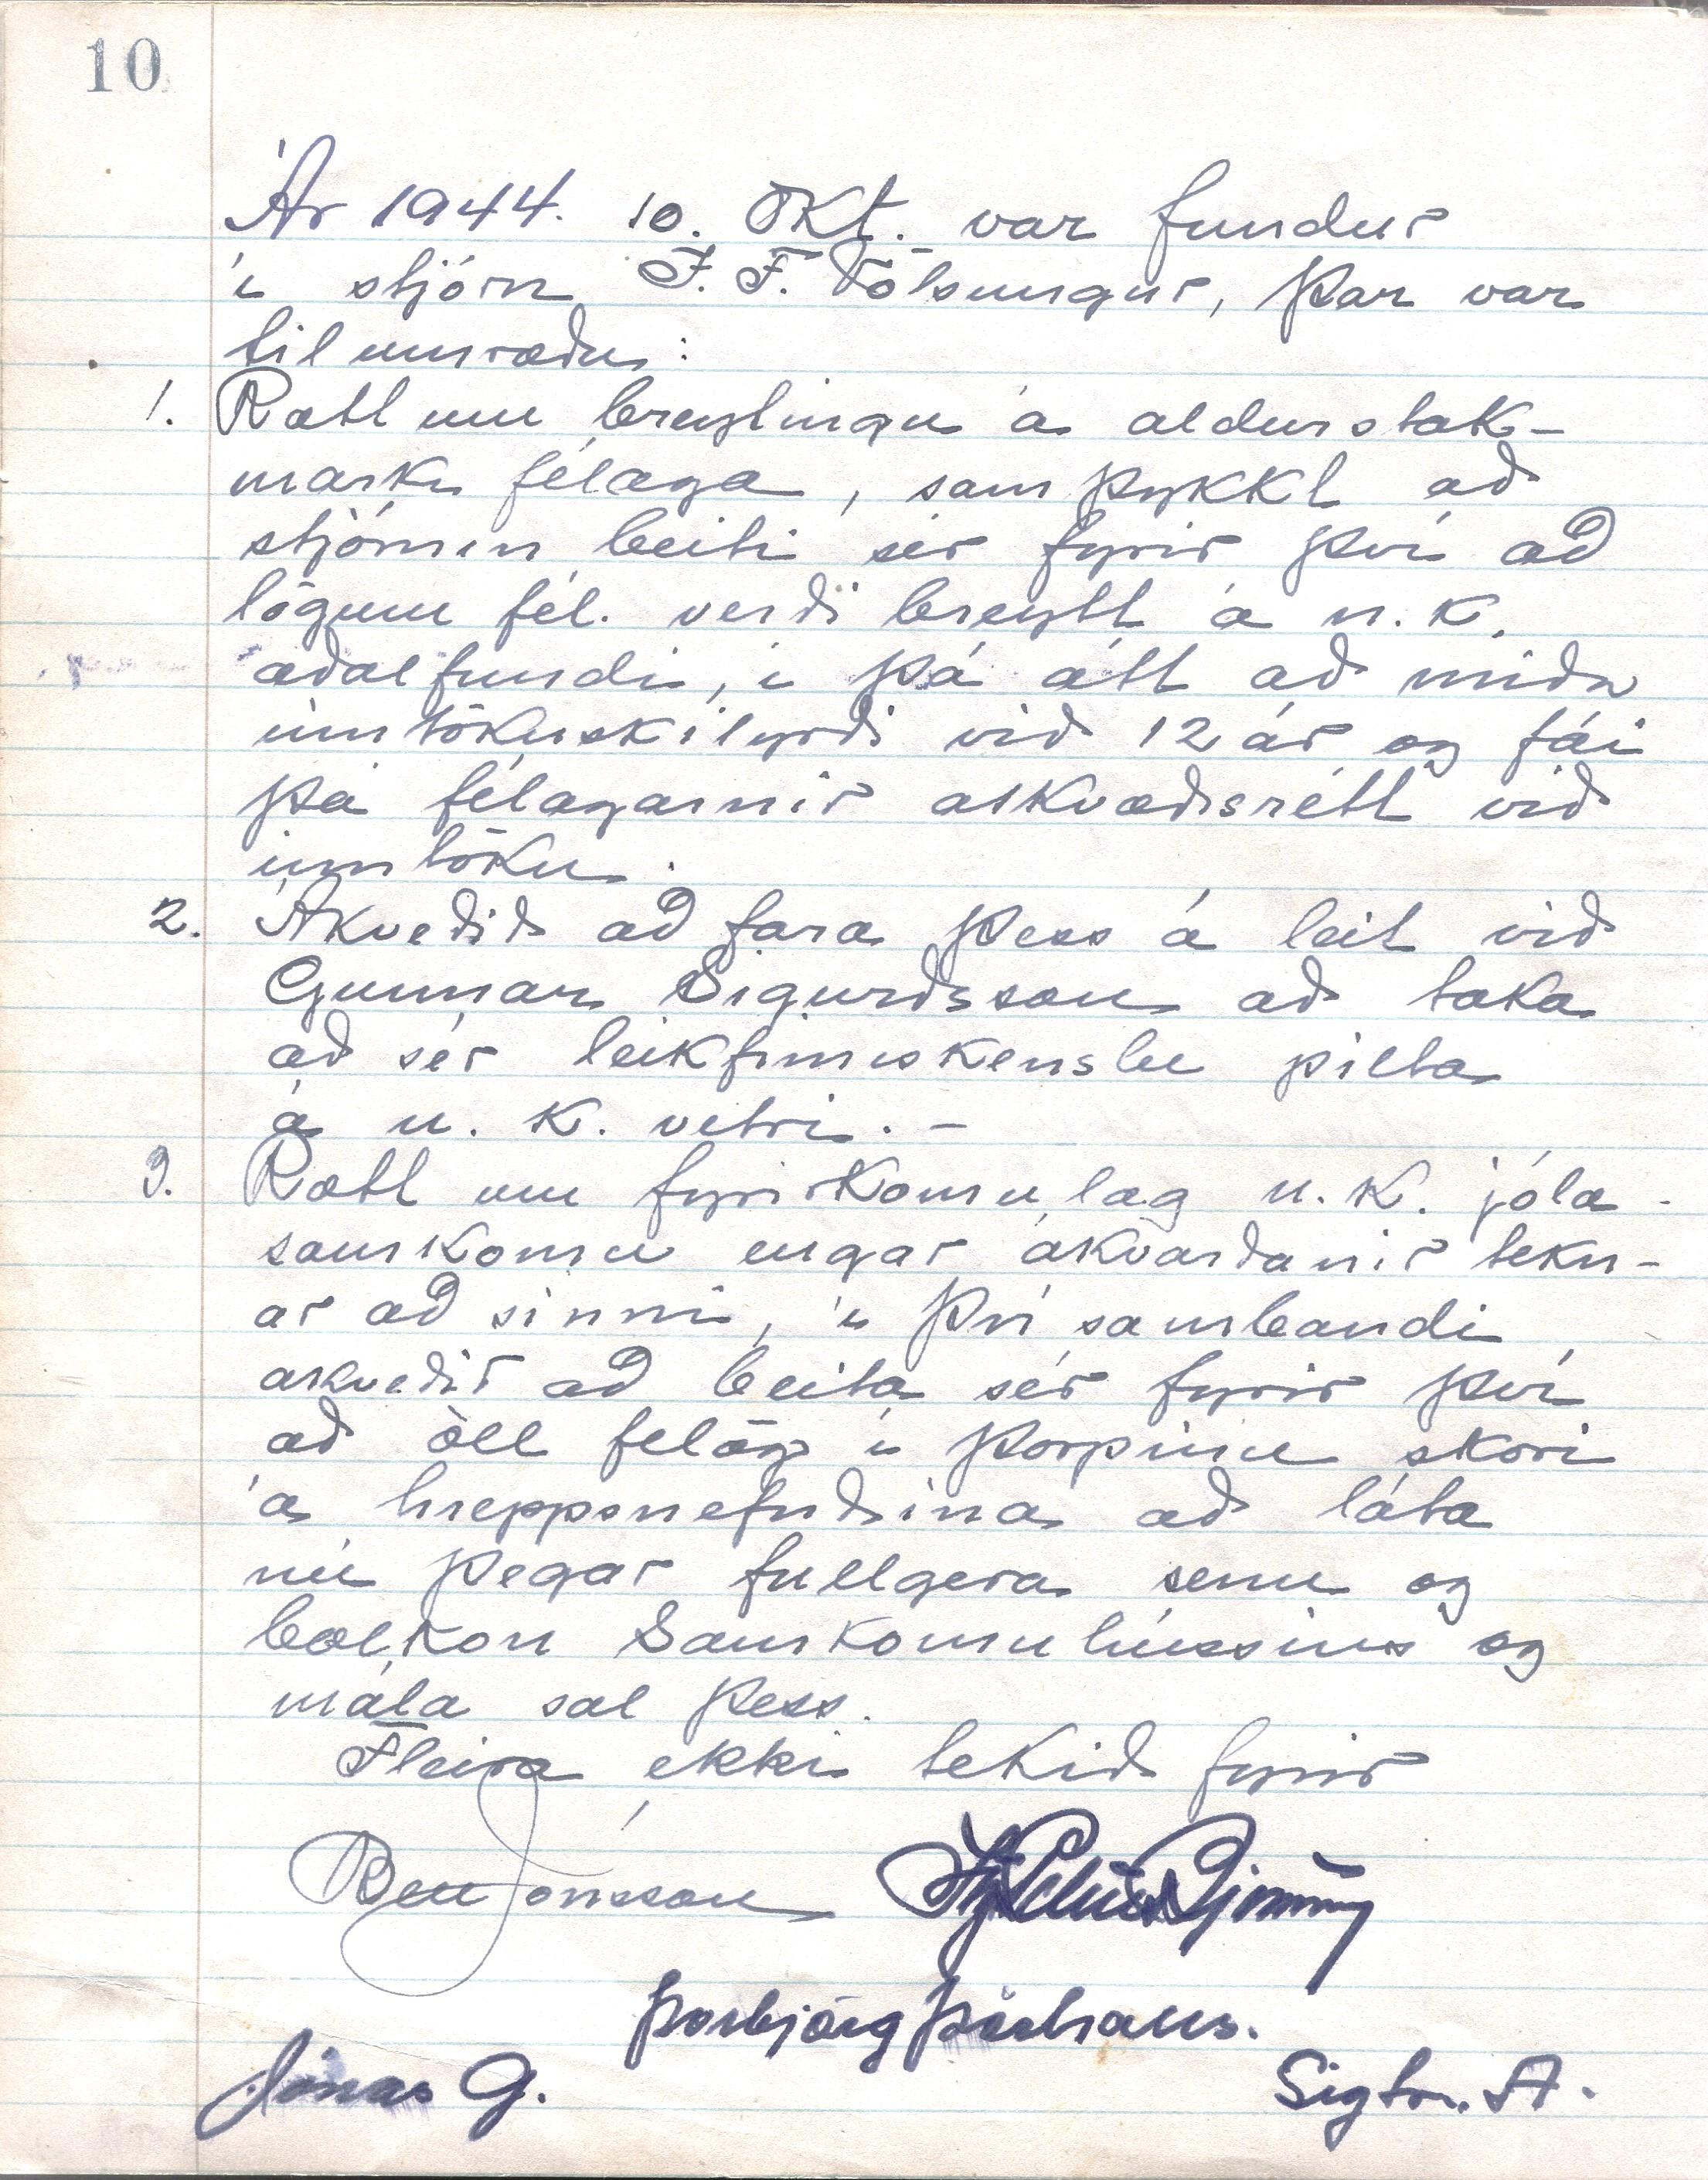 10
Ár 1944. 10. Okt. var fundur
í stjórn Í. F. Völsungur, þar var
til umrædu:
1. Rætt um breytingu á aldurstak-
marki félaga, samþykkt að
stjórnin beiti sér fyrir því að
lögum fél. verdi breytt á n.k.
aðalfundi, í þá átt að miða
inntökuskilyrði við 12 ár og fái
þá félagarnir atkvæðisrétt við
inntöku.
2. Ákveðið að fara þess á leit við
Gunnar Sigurðsson að taka
að sér leikfimiskenslu pilta
á n.k. vetri. -
3. Rætt um fyrirkomulag n.k. jóla-
samkomu engar ákvarðanir tekn-
ar að sinni, í því sambandi
ákveðið að beita sér fyrir því
að öll félög í þorpinu skori
á hreppsnefndina að láta
nú þegar fullgera senu og
balkon Samkomuhússins og
mála sal þess.
Fleira ekki tekið fyrir
Ben Jónsson
Þorbjörg Þórhalls.
Jónas G. Sigtr. A.